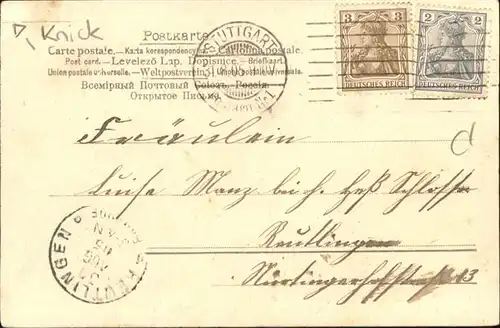 Knick
Postkarte
Carte postale. — Karta korespondencyjna — Cartolina postale.
Post card. — Levelező Lap. Dopisnice. — Briefkaart.
Union postale universelle. — Weltpostverein — Unione postale universale.
Всемірный Почтовый Союзъ. Россія.
Открытое Письмо.
STUTTGART
3 3
DEUTSCHES REICH
2 2
DEUTSCHES REICH
d
Fräulein
Luise Manz bei H. Heß Schlosser
Reutlingen
Nürtingerhofstraße 13
REUTLINGEN